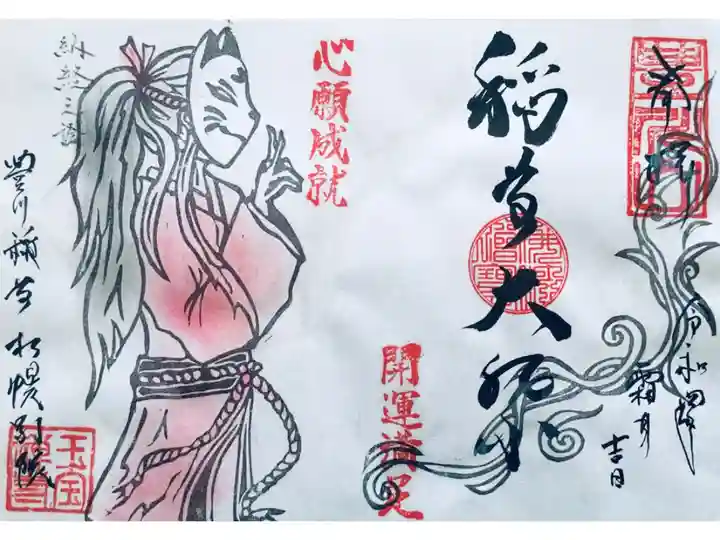 奉拝
令和四年
霜月
吉日
稲荷大
佛法僧寶
開運満足
心願成就
納経之證
豊川稲荷 札幌別院